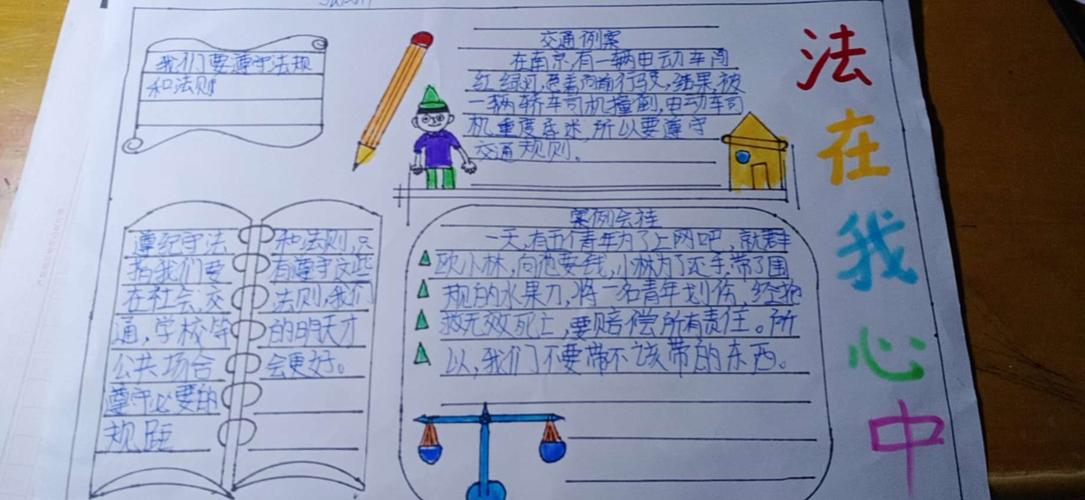 我们要遵守法规
和法则
交通例案
在南京,有一辆电动车闯
红绿灯,向前行驶,结果,被
一辆轿车司机撞倒,电动车司
机重度昏迷,所以要遵守
交通规则。
法
在
我
心
中
遵纪守法
指我们要
在社会,交
通,学校等
公共场合
遵守必要的
规距
和法则,只
有遵守这些
法则,我们
的明天才
会更好。
案例
一天,有五个青年为了上网吧,就群
欧小林,向他要钱,小林为了还手,带了国
规的水果刀,将一名青年划伤,经抢
救无效死亡,要赔偿所有责任。所
以,我们不要带不该带的东西。